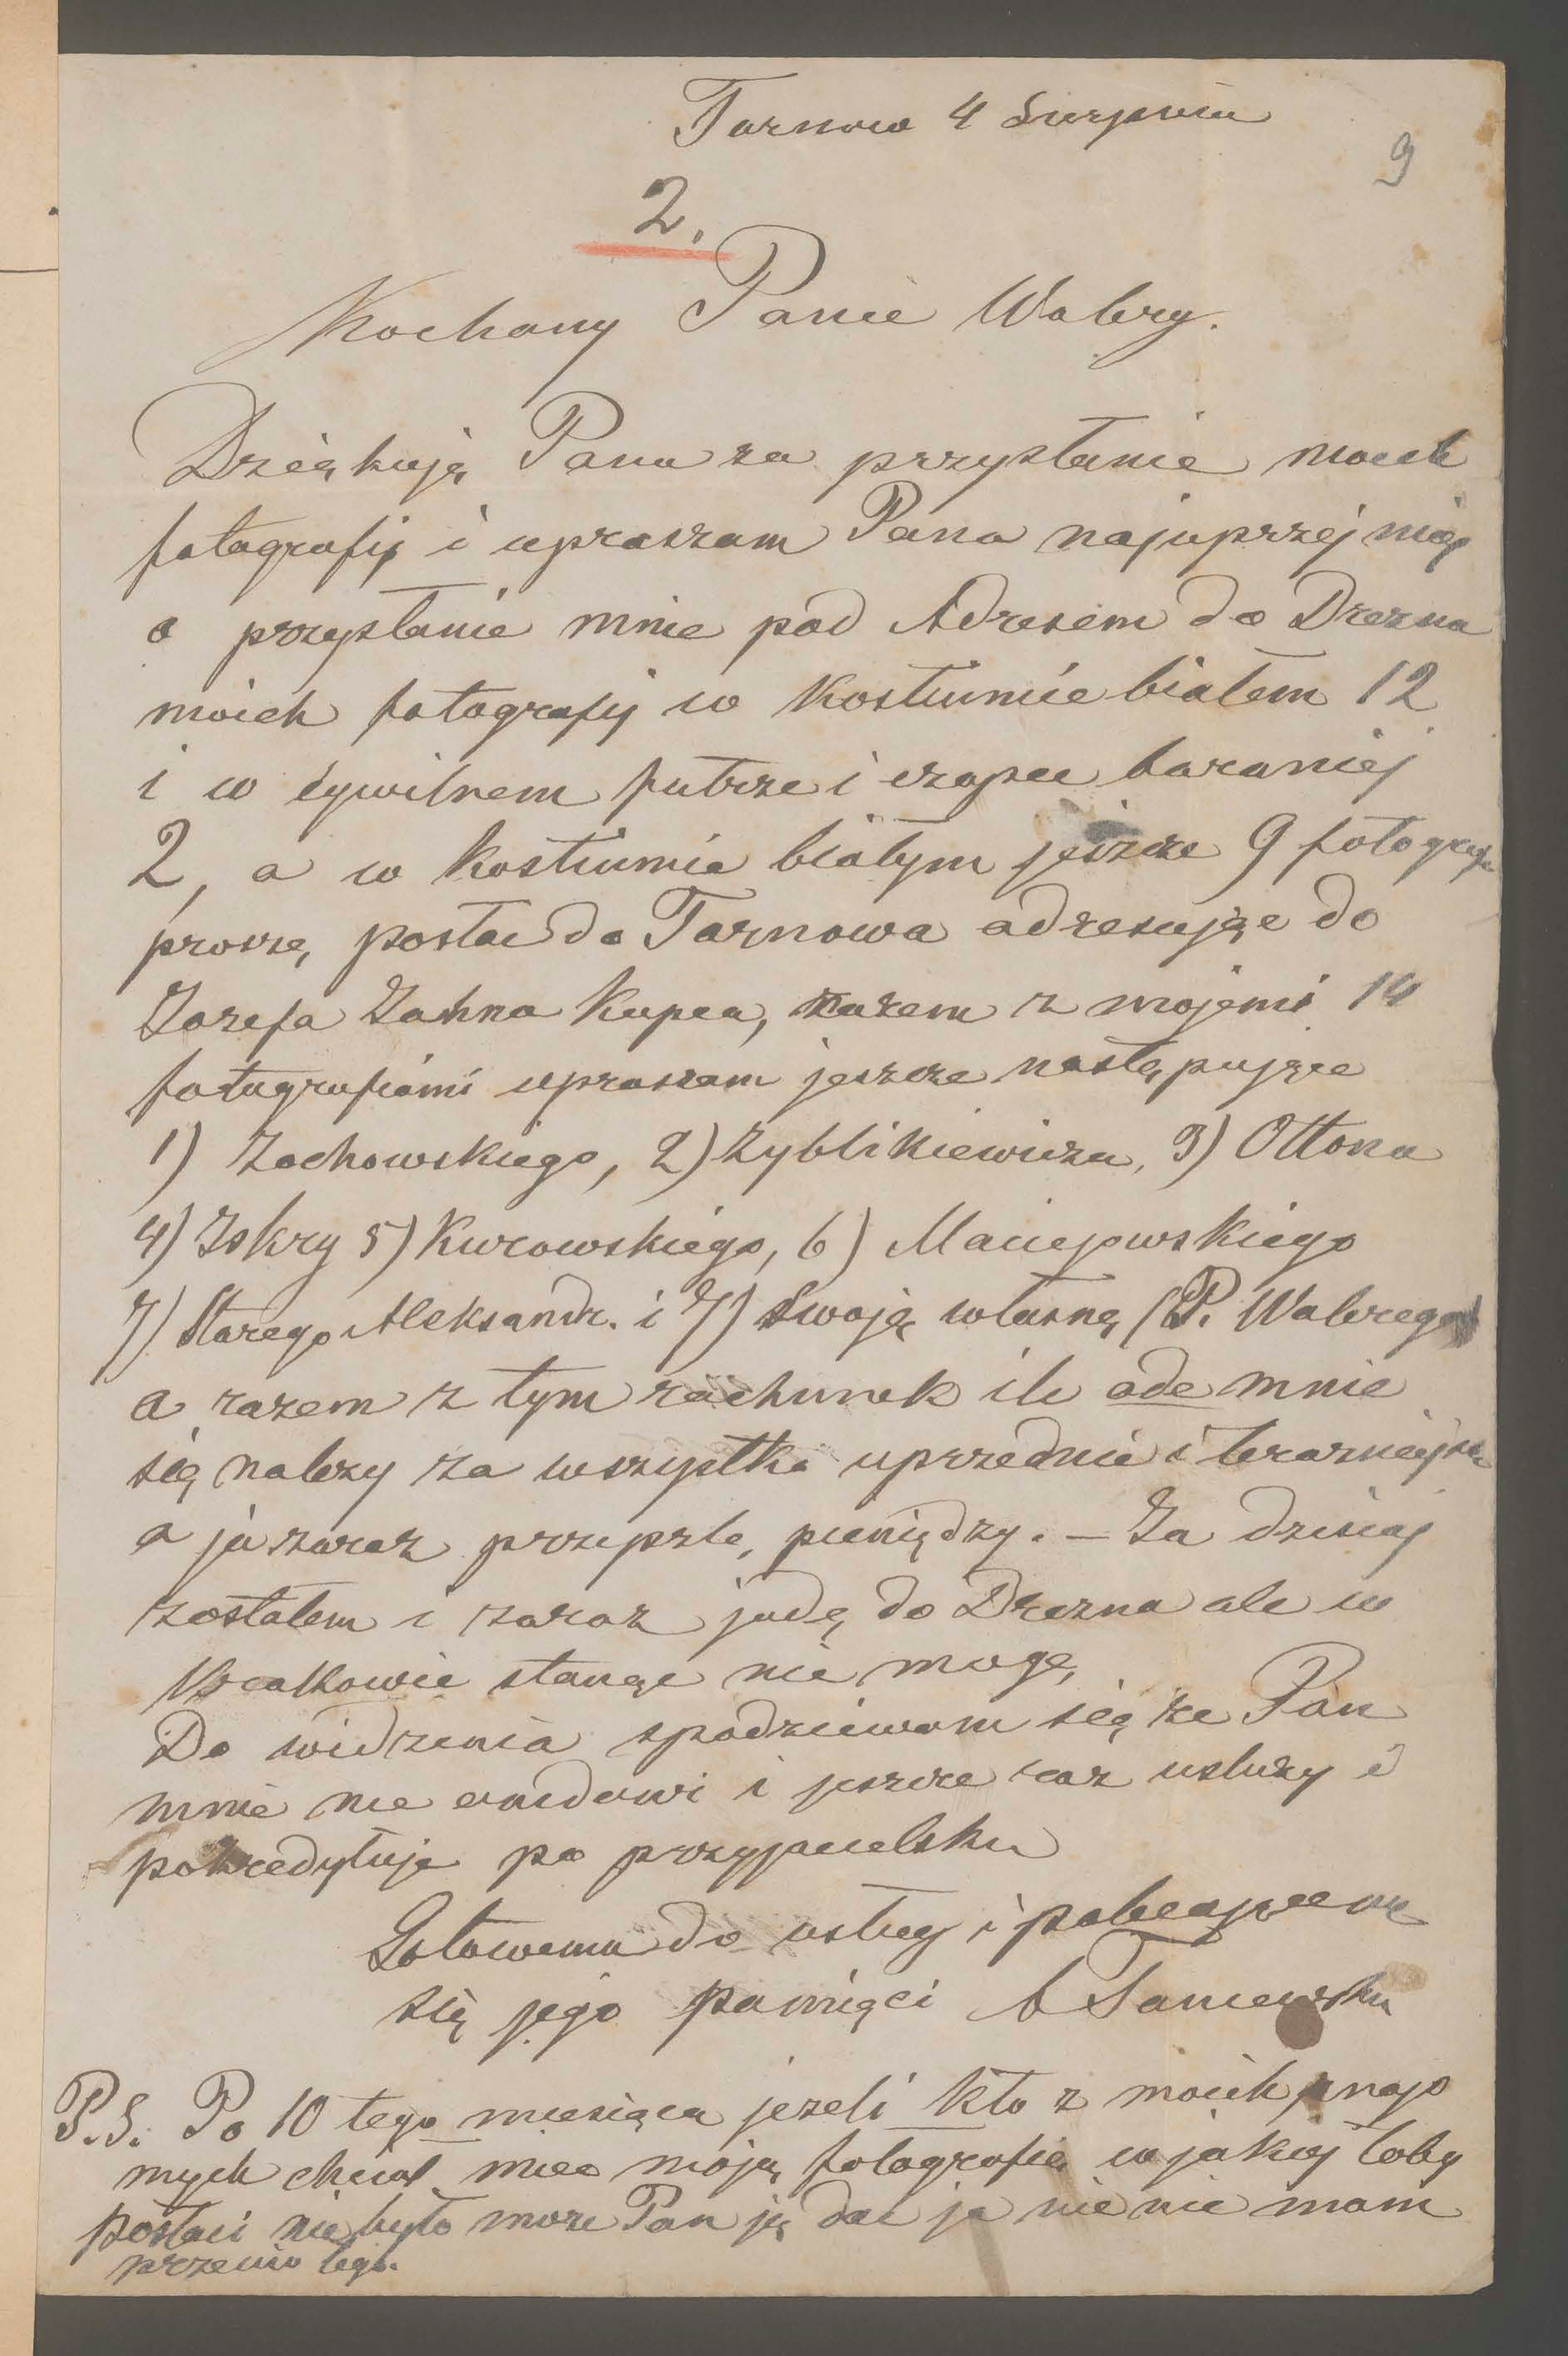 Tarnow 4 Sierpnia
9
2.
Kochany Panie Walery.
Dziękuję Panu za przysłanie moich
fotografij i upraszam Pana najuprzejmiej
o przysłanie mnie pod Adresem do Drezna
moich fotografij w Kostiumie białem 12
i w cywilnem futrze i czapce baraniej
2, a w Kostiumie białym jeszcze 9 fotograf
proszę, posłac do Tarnowa adresując do
Jozefa Jahna Kupca, razem z mojemi 14
fotografiami upraszam jeszcze następujące
1) Żochowskiego, 2) Zyblikiewicza, 3) Ottona
4) Iskry 5) Kurowskiego, 6) Maciejowskiego
7) Starego Aleksandr. i 7) Swoją własną (P. Walerego
a razem z tym rachunek ile ode mnie
się należy za wszystko uprzednie i terazniejsze
a ja zaraz przeszlę, pieniędzy. – Ja dzisiaj
zostałem i zaraz jadę do Drezna ale w
Krakowie stanąc nie mogę,
Do widzenia spodziewam się że Pan
mnie nie i jeszcze raz usłuży i
pokredytuje po przyjacielsku
Gotowemu do usług i polecającemu
się jego pamięci A
P.S. Po 10 tego miesiąca jezeli kto z moich znajo
mych chciał miec moją fotografię w jakiej toby
postaci nie było moze Pan ją dac ja nic nie mam
przeciw tego.